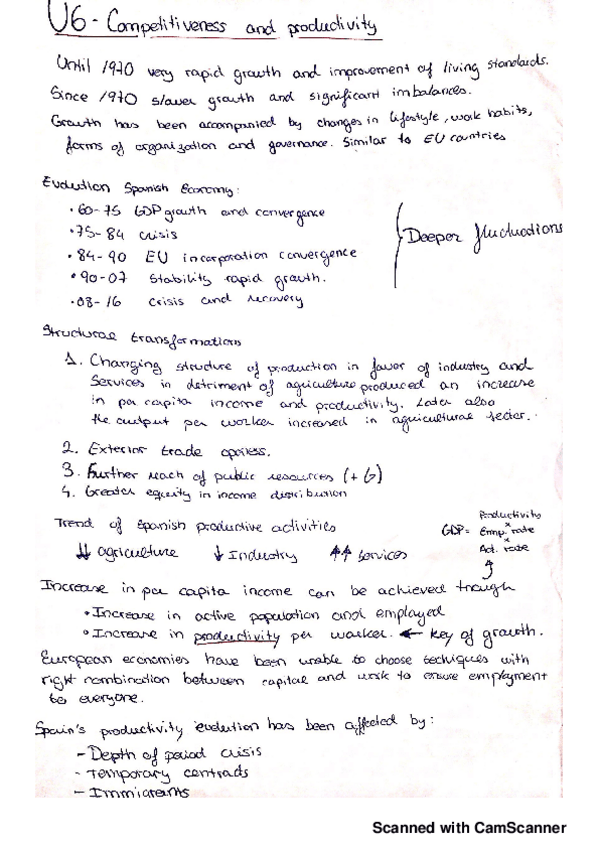 U6 - Competitiveness and productivity
Until 1970 very rapid growth and improvement of living standards.
Since 1970 slower growth and significant imbalances.
Growth has been accompanied by changes in lifestyle, work habits,
forms of organization and governance. Similar to EU countries
Evolution Spanish Economy:
· 60-75 GDP growth and convergence
· 75-84 crisis
· 84-90 EU incorporation convergence
· 90-07 Stability rapid growth.
· 08-16 crisis and recovery
Deeper fluctuations
Structural transformations
1. Changing structure of production in favor of industry and
Services in detriment of agriculture produced an increase
in per capita income and productivity. Later also
the output per worker increased in agricultural sector.
2. Exterior trade opness.
3. Further reach of public resources (+G)
4. Greater equity in income distribution
Trend of Spanish productive activities
↓↓ agriculture ↓ Industry ↑↑ Services
GDP = Productivity
x
Emp. rate
x
Act. rate
Increase in per capita income can be achieved trough
· Increase in active population and employed
· Increase in productivity per worker. ← key of growth.
European economies have been unable to choose techniques with
right combination between capital and work to ensure employment
to everyone.
Spain's productivity evolution has been affected by:
- Depth of period crisis
- Temporary contracts
- Immigrants
Scanned with CamScanner